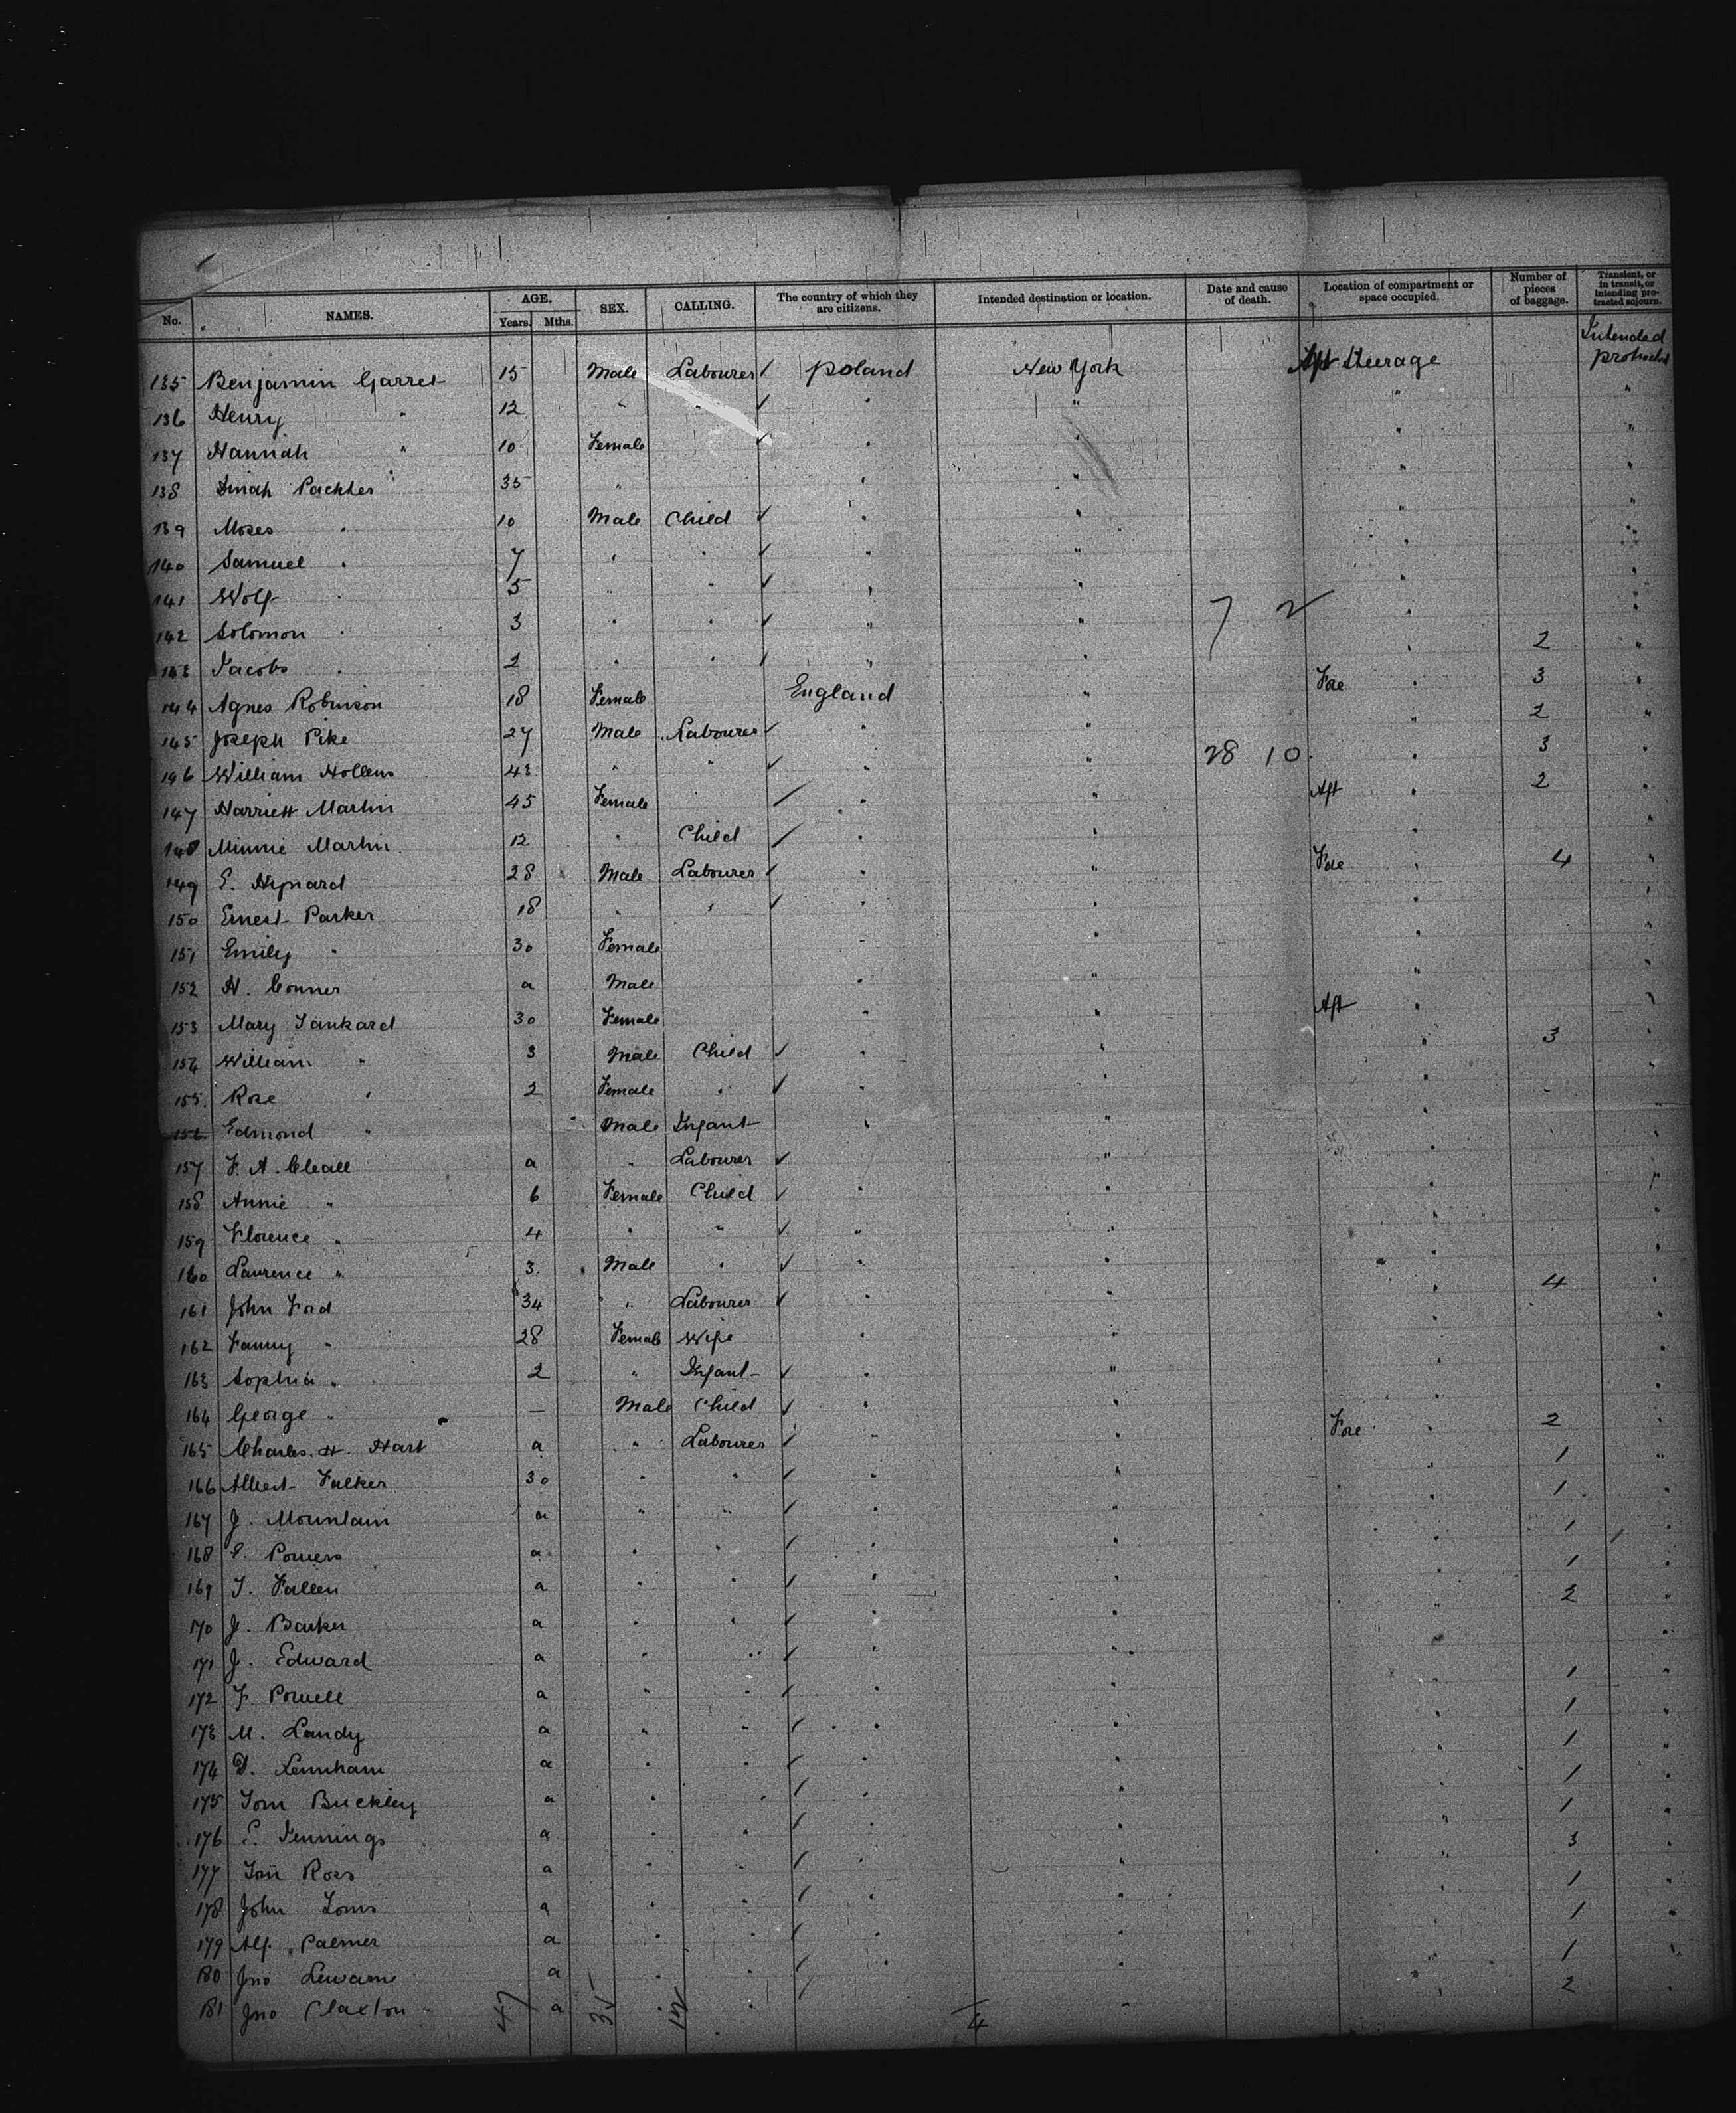 No. NAMES. AGE. Years. Mths. SEX. CALLING. The country of which they are citizens. Intended destination or location. Date and cause of death. Location of compartment or space occupied. Number of pieces of baggage. Transient, or in transit, or intending protracted sojourn.
135 Benjamin Garret 15 Male Labourer ✓ Poland New York Aft Steerage Intended protracted
136 Henry " 12 " " ✓ " " " "
137 Hannah " 10 Female ✓ " " " "
138 Pachter " 35 " " " " "
139 Moses " 10 Male Child ✓ " " " "
140 Samuel " 7 " " ✓ " " " "
141 Wolf " 5 " " ✓ " " " "
142 Solomon " 3 " " ✓ " " 7 2 " "
143 Jacobs " 2 " " ✓ " " " 2 "
144 Agnes Robinson 18 Female England " Fore " 3 "
145 Joseph Pike 27 Male Labourer ✓ " " " 2 "
146 William Hollens 43 " " ✓ " " 28 10 " 3 "
147 Harriett Martin 45 Female ✓ " " Aft " 2 "
148 Minnie Martin 12 " Child ✓ " " " "
149 E. 28 Male Labourer ✓ " " Fore " 4 "
150 Ernest Parker 18 " " ✓ " " " "
151 Emily " 30 Female " " " "
152 H. Conner a Male " " " "
153 Mary Tankard 30 Female " " Aft " "
154 William " 3 Male Child ✓ " " " 3 "
155 Rose " 2 Female " ✓ " " " "
156 Edmond " Male Infant " " " "
157 F. A. Cleall a " Labourer ✓ " " " "
158 Annie " 6 Female Child ✓ " " " "
159 Florence " 4 " " ✓ " " " "
160 Laurence " 3 Male " ✓ " " " "
161 John Ford 34 " Labourer ✓ " " " 4 "
162 Fanny " 28 Female Wife " " " "
163 Sophia " 2 " Infant ✓ " " " "
164 George " — Male Child ✓ " " " "
165 Charles. H. Hart a " Labourer ✓ " " Fore " 2 "
166 Albert Falker 30 " " ✓ " " " 1 "
167 J. Mountain a " " ✓ " " " 1 "
168 Powers a " " ✓ " " " 1 "
169 Fallen a " " ✓ " " " 1 "
170 J. Barker a " " ✓ " " " 2 "
171 J. Edward a " " ✓ " " "
172 F. Powell a " " ✓ " " " 1 "
173 M. Landy a " " ✓ " " " 1 "
174 D. Lennham a " " ✓ " " " 1 "
175 Tom Buckley a " " ✓ " " " 1 "
176 Jennings a " " ✓ " " " 1 "
177 Tom Ross a " " ✓ " " " 3 "
178 John a " " ✓ " " " 1 "
179 Alf. Palmer a " " ✓ " " " 1 "
180 Jno Lewarne a " " ✓ " " " 1 "
181 Jno Claxton a " " ✓ " " " 2 "
47 35 12 4